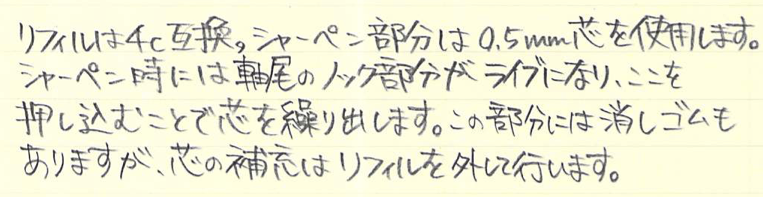 リフィルは4c互換。シャーペン部分は0.5mm芯を使用します。
シャーペン時には軸尾のノック部分がライブになり、ここを
押し込むことで芯を繰り出します。この部分には消しゴムも
ありますが、芯の補充はリフィルを外して行います。